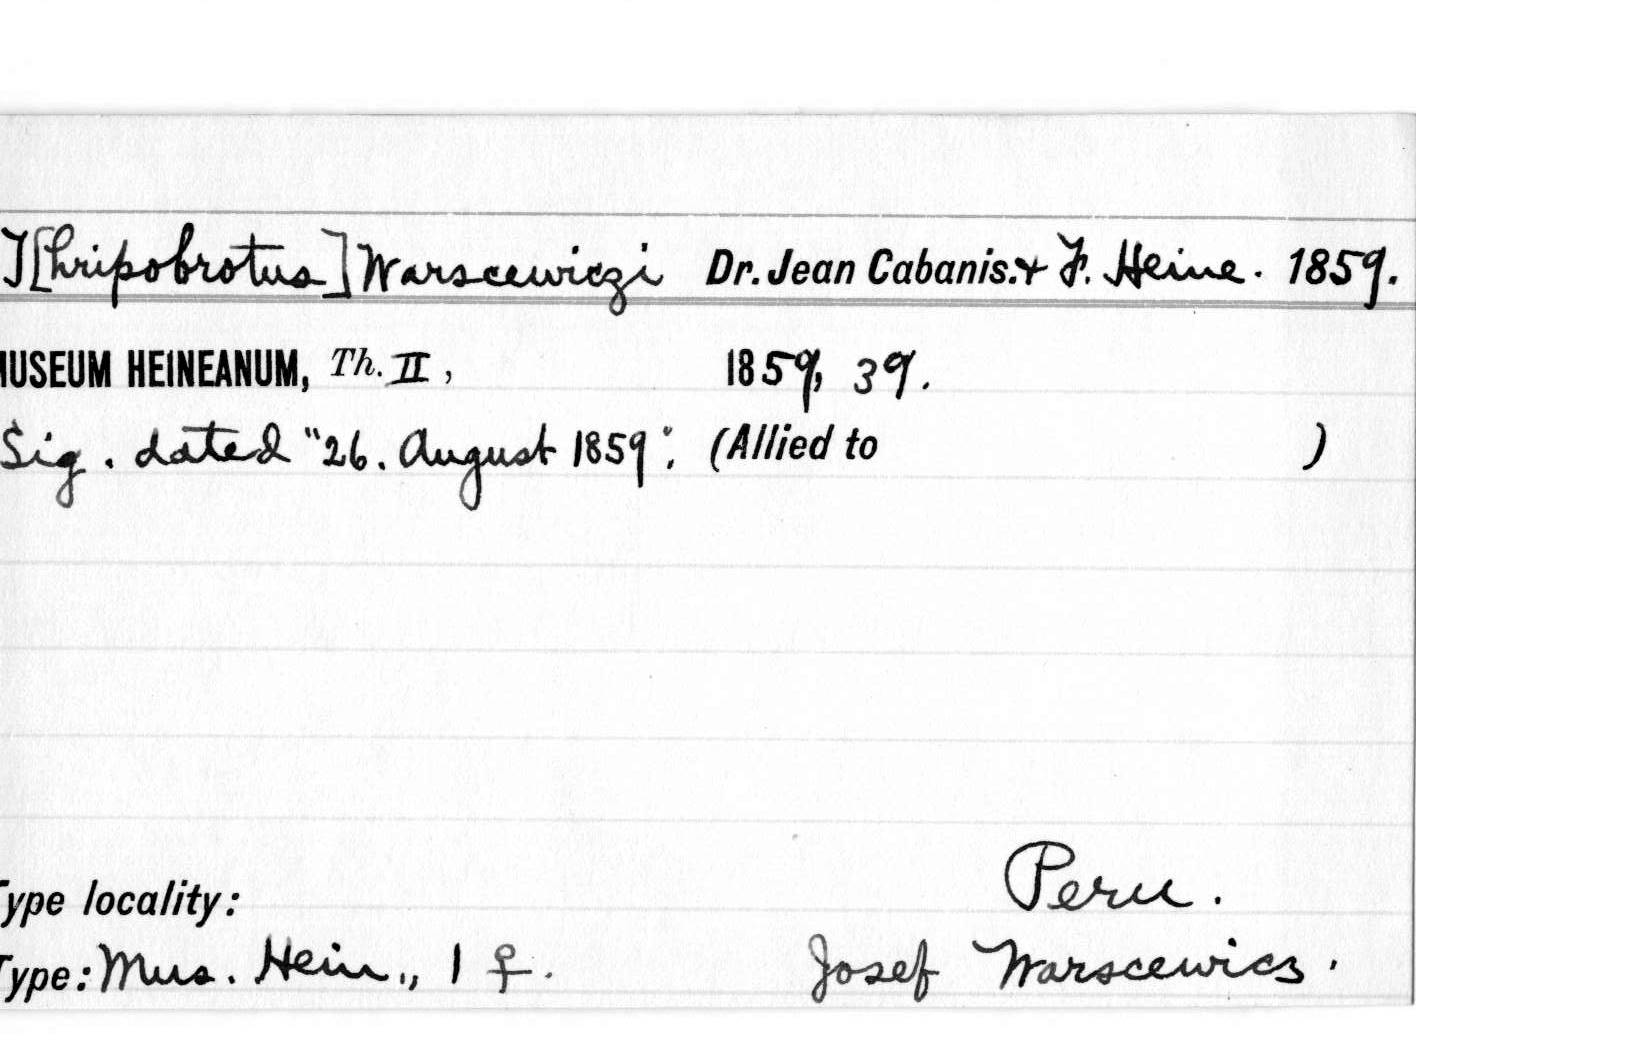 T[hripobrotus] Warscewiczi Dr. Jean Cabanis. & F. Heine. 1859.
MUSEUM HEINEANUM, Th. II, 1859, 39.
Sig. dated "26. August 1859"; (Allied to )
Type locality: Peru.
Type: Mus. Hein., 1 ♀. Josef Warscewicz.